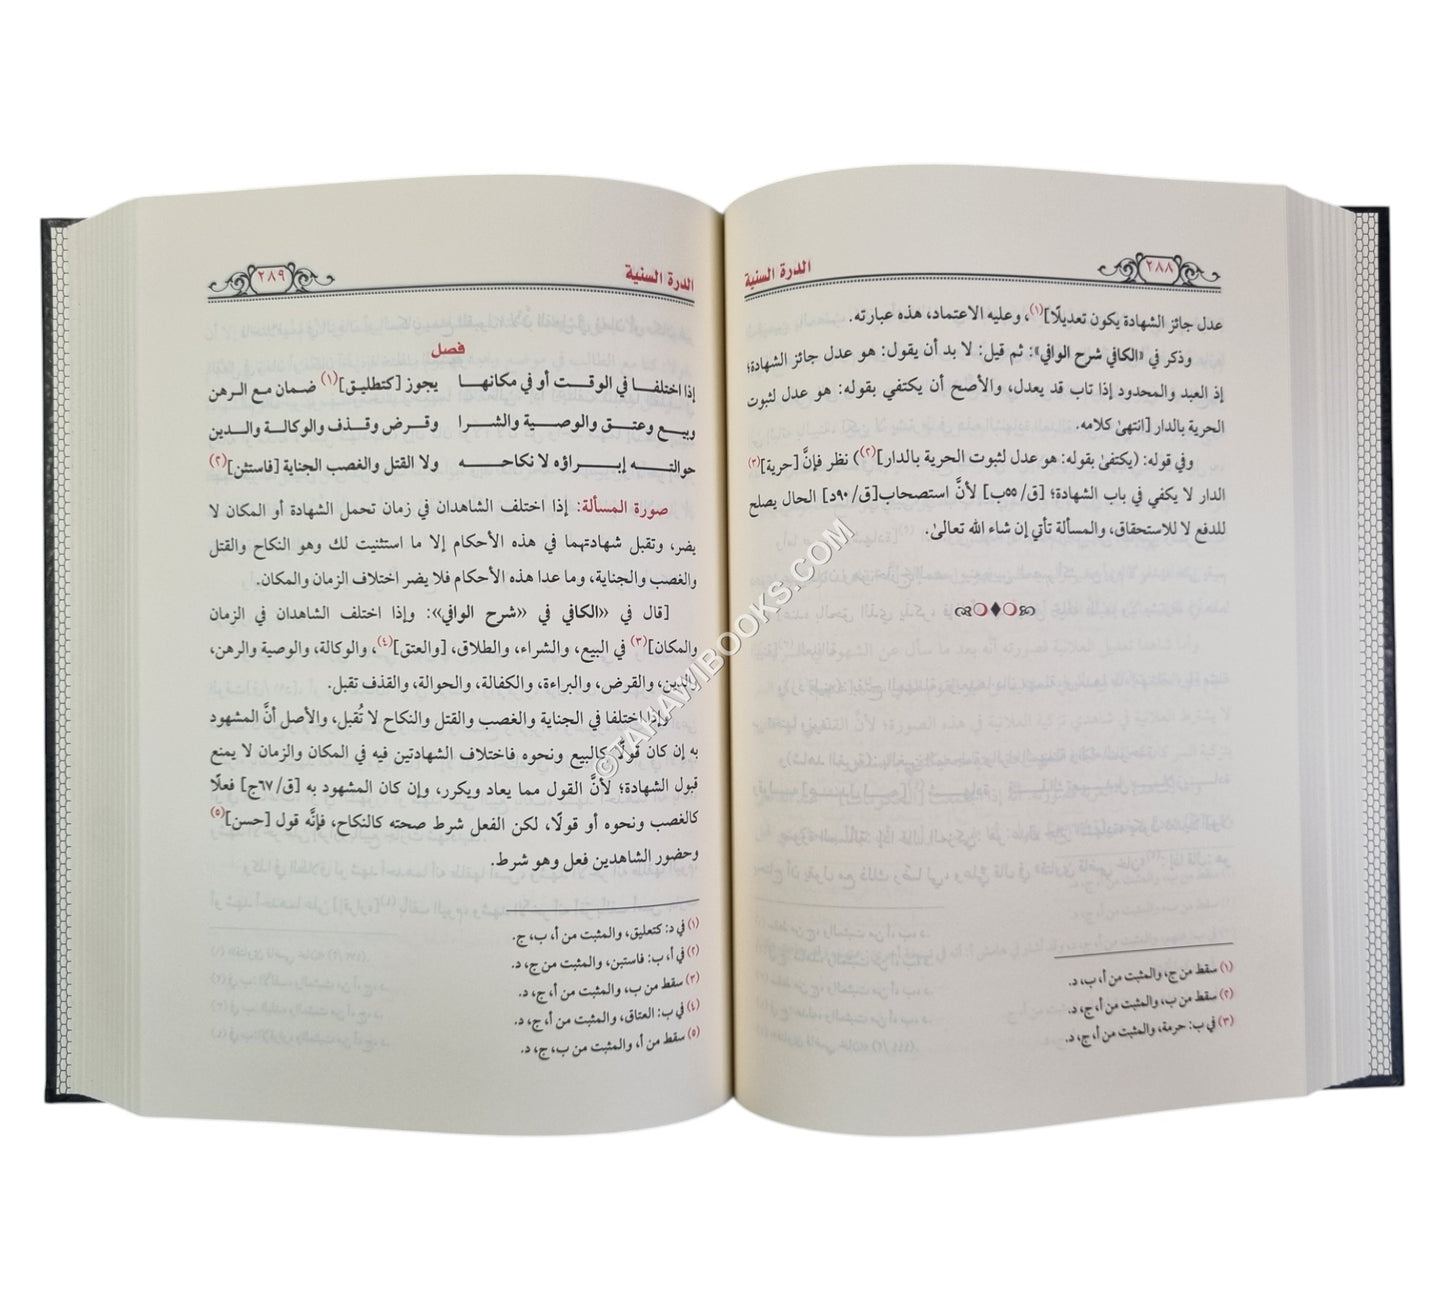 ٢٨٨
الدرة السنية
عدل جائز الشهادة يكون تعديلًا](١)، وعليه الاعتماد، هذه عبارته.
وذكر في «الكافي شرح الوافي»: ثم قيل: لا بد أن يقول: هو عدل جائز الشهادة؛
إذ العبد والمحدود إذا تاب قد يعدل، والأصح أن يكتفي بقوله: هو عدل لثبوت
الحرية بالدار [انتهىٰ كلامه.
وفي قوله: (يكتفىٰ بقوله: هو عدل لثبوت الحرية بالدار](٢)) نظر فإنَّ [حرية](٣)
الدار لا يكفي في باب الشهادة؛ [ق/٥٥ب] لأنَّ استصحاب[ق/٩٠د] الحال يصلح
للدفع لا للاستحقاق، والمسألة تأتي إن شاء الله تعالىٰ.
(١) سقط من ج، والمثبت من أ، ب، د.
(٢) سقط من ب، والمثبت من أ، ج، د.
(٣) في ب: حرمة، والمثبت من أ، ج، د.
الدرة السنية
٢٨٩
فصل
إذا اختلفا في الوقت أو في مكانها يجوز [كتطليق](١) ضمان مع الرهن
وبيع وعتق والوصية والشرا وقرض وقذف والوكالة والدين
حوالته إبراؤه لا نكاحه ولا القتل والغصب الجناية [فاستثن](٢)
صورة المسألة: إذا اختلف الشاهدان في زمان تحمل الشهادة أو المكان لا
يضر، وتقبل شهادتهما في هذه الأحكام إلا ما استثنيت لك وهو النكاح والقتل
والغصب والجناية، وما عدا هذه الأحكام فلا يضر اختلاف الزمان والمكان.
[قال في «الكافي في «شرح الوافي»: وإذا اختلف الشاهدان في الزمان
والمكان](٣) في البيع، والشراء، والطلاق، [والعتق](٤)، والوكالة، والوصية والرهن،
والدين، والقرض، والبراءة، والكفالة، والحوالة، والقذف تقبل.
وإذا اختلفا في الجناية والغصب والقتل والنكاح لا تُقبل، والأصل أنَّ المشهود
به إن كان قولًا كالبيع ونحوه فاختلاف الشهادتين فيه في المكان والزمان لا يمنع
قبول الشهادة؛ لأنَّ القول مما يعاد ويكرر، وإن كان المشهود به [ق/٦٧ج] فعلًا
كالغصب ونحوه أو قولًا، لكن الفعل شرط صحته كالنكاح، فإنَّه قول [حسن](٥)
وحضور الشاهدين فعل وهو شرط.
(١) في د: كتعليق، والمثبت من أ، ب، ج.
(٢) في أ، ب: فاستبن، والمثبت من ج، د.
(٣) سقط من ب، والمثبت من أ، ج، د.
(٤) في ب: العتاق، والمثبت من أ، ج، د.
(٥) سقط من أ، والمثبت من ب، ج، د.
©TAHAWIBOOKS.COM